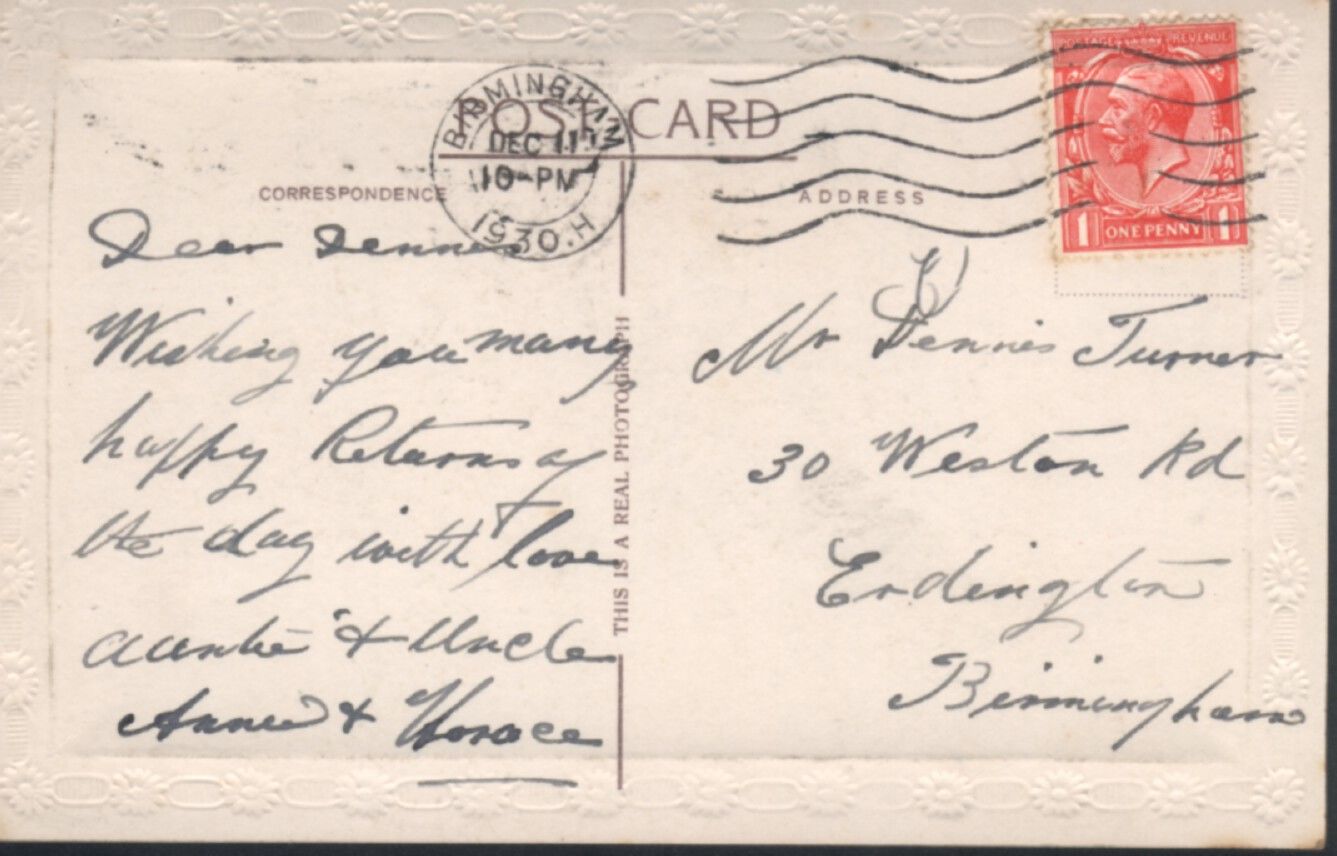 POST CARD
BIRMINGHAM
DEC 11
10-PM
1930.H
POSTAGE REVENUE
1 ONE PENNY 1
CORRESPONDENCE
ADDRESS
Dear Dennis
Wishing you many
happy Returns of
the day with love
Auntie & Uncle
Annie & Horace
THIS IS A REAL PHOTOGRAPH
Mr Dennis Turner
30 Weston Rd
Erdington
Birmingham